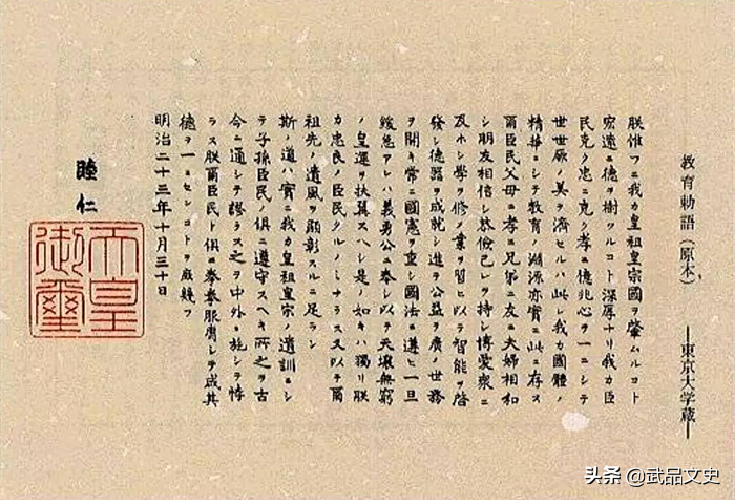 教育勅語（原本）　——東京大学蔵——
朕惟フニ我カ皇祖皇宗國ヲ肇ムルコト
宏遠ニ德ヲ樹ツルコト深厚ナリ我カ臣
民克ク忠ニ克ク孝ニ億兆心ヲ一ニシテ
世世厥ノ美ヲ濟セルハ此レ我カ國體ノ
精華ニシテ教育ノ淵源亦實ニ此ニ存ス
爾臣民父母ニ孝ニ兄弟ニ友ニ夫婦相和
シ朋友相信シ恭儉己レヲ持シ博愛衆ニ
及ホシ學ヲ修メ業ヲ習ヒ以テ智能ヲ啓
發シ德器ヲ成就シ進テ公益ヲ廣メ世務
ヲ開キ常ニ國憲ヲ重シ國法ニ遵ヒ一旦
緩急アレハ義勇公ニ奉シ以テ天壤無窮
ノ皇運ヲ扶翼スヘシ是ノ如キハ獨リ朕
カ忠良ノ臣民タルノミナラス又以テ爾
祖先ノ遺風ヲ顯彰スルニ足ラン
斯ノ道ハ實ニ我カ皇祖皇宗ノ遺訓ニシ
テ子孫臣民ノ俱ニ遵守スヘキ所之ヲ古
今ニ通シテ謬ラス之ヲ中外ニ施シテ悖
ラス朕爾臣民ト俱ニ拳拳服膺シテ咸其
德ヲ一ニセンコトヲ庶幾フ
明治二十三年十月三十日
睦仁
天皇
御璽
头条 @武品文史